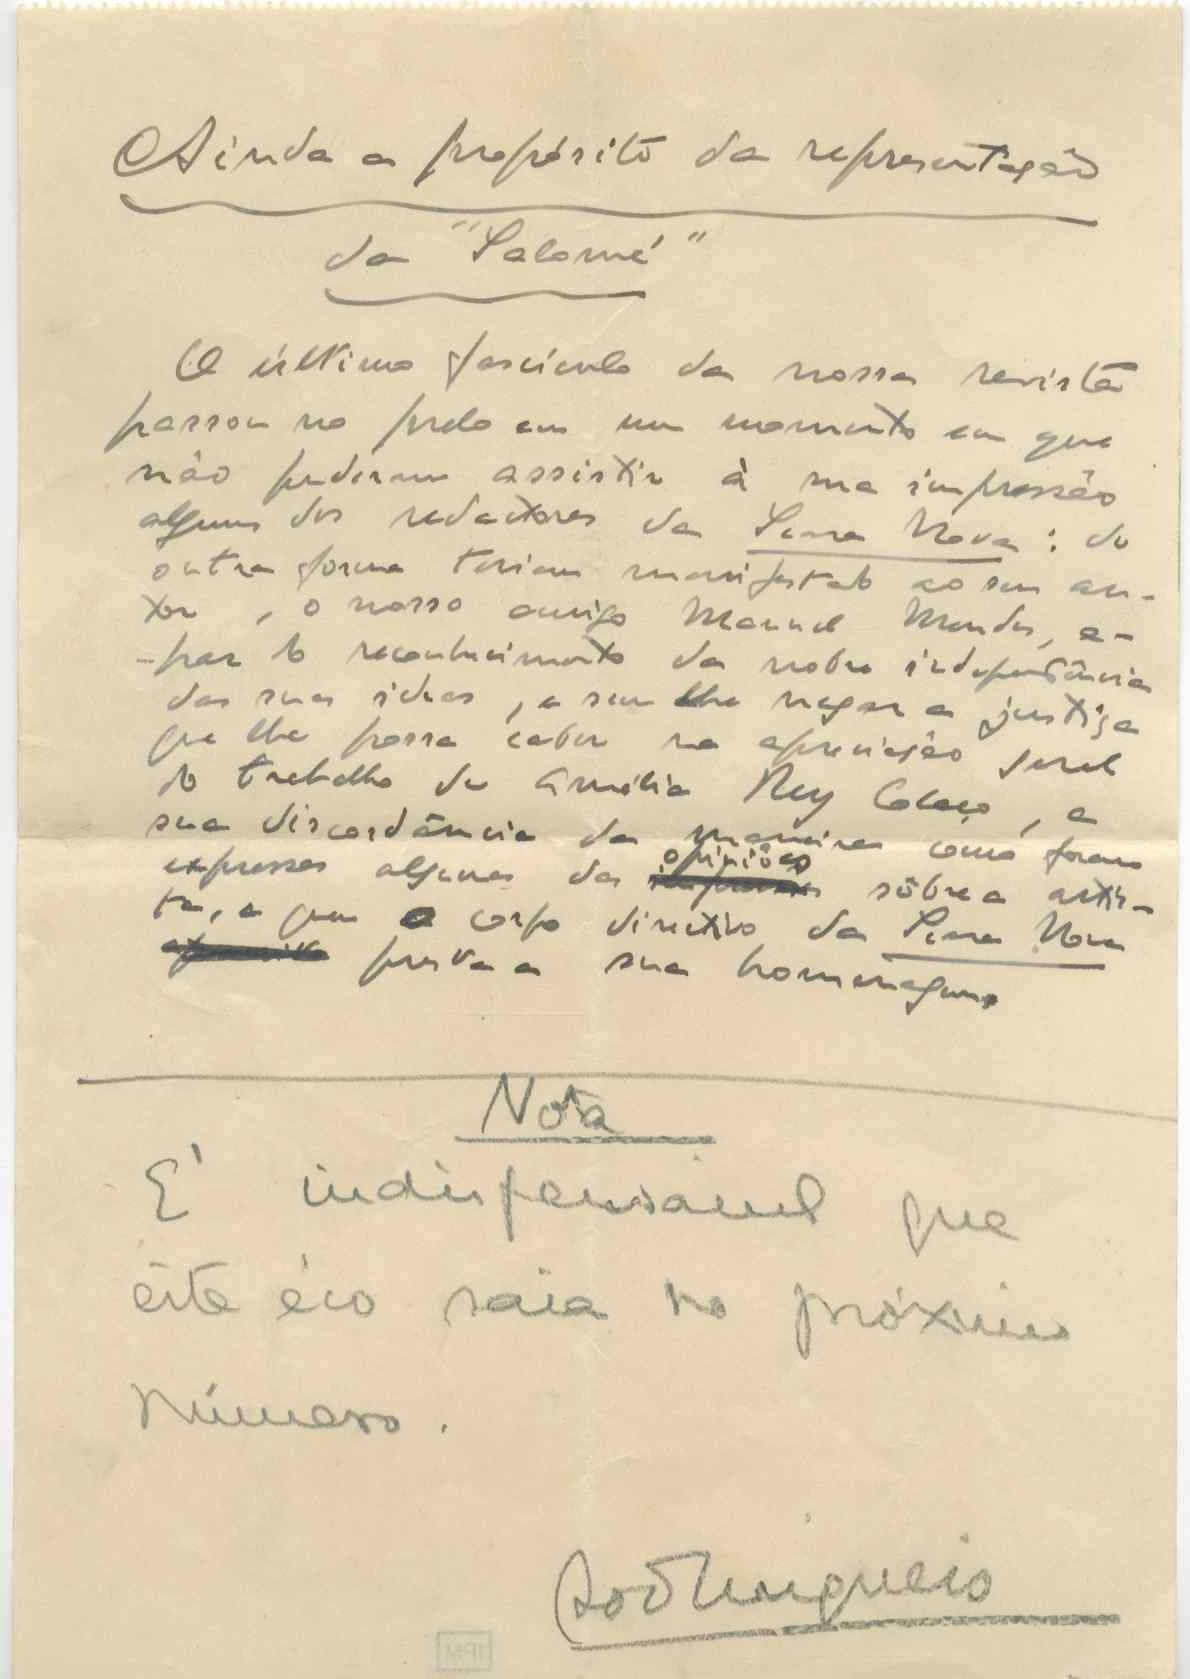 Ainda a propósito da representação
da "Salomé"
O último fascículo da nossa revista
passou no prelo em um momento em que
não puderam assistir à sua impressão
alguns dos redactores da Seara Nova: de
outra forma teriam manifestado ao seu au-
tor, o nosso amigo Manuel Mendes, a-
-par do reconhecimento da nobre independência
das suas ideas, e sem lhe negar a justiça
que lhe possa caber na apreciação geral
do trabalho de Amélia Rey Colaço, a
sua discordância da maneira como foram
expressas algumas das opiniões sôbre a artis-
ta, a quem o corpo directivo da Seara Nova
presta a sua homenagem.
Nota
É indispensável que
êste éco saia no próximo
número.
Rod Migueis
IPM